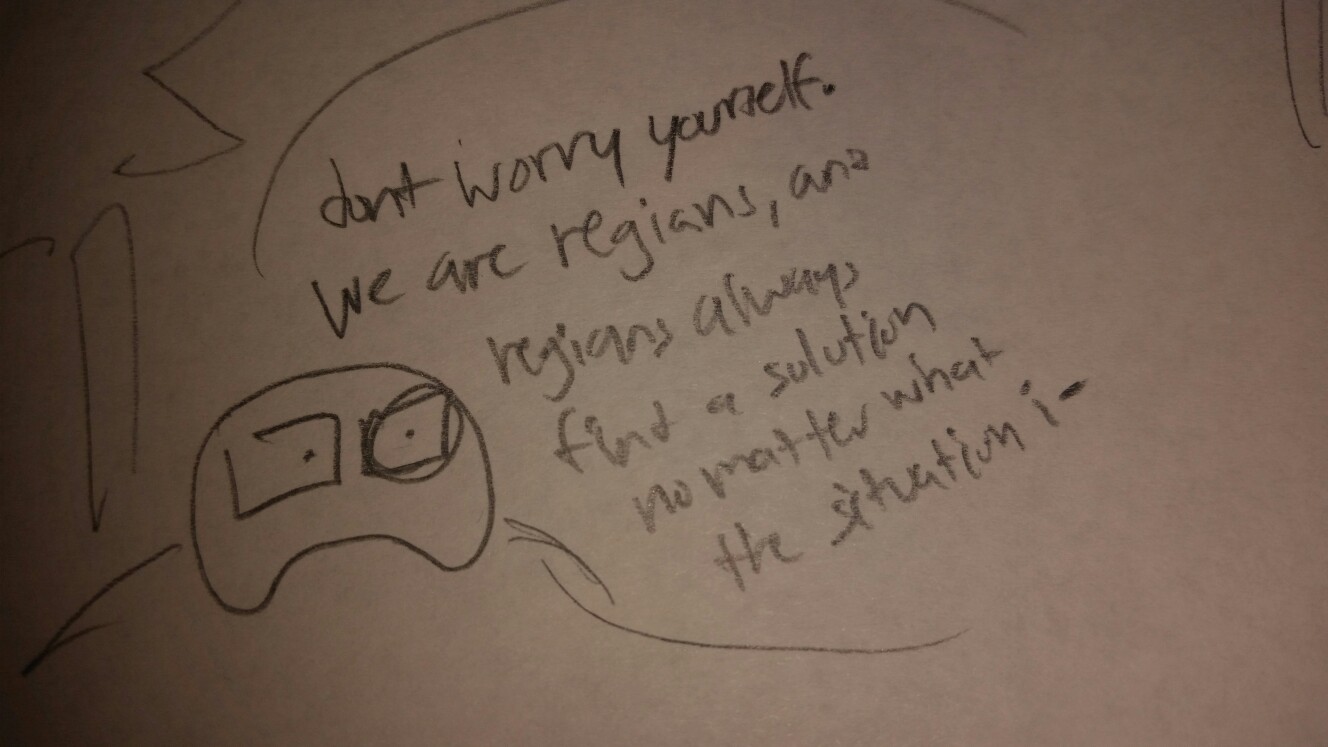 dont worry yourself.
We are regians, and
regians always
find a solution
no matter what
the situation i-